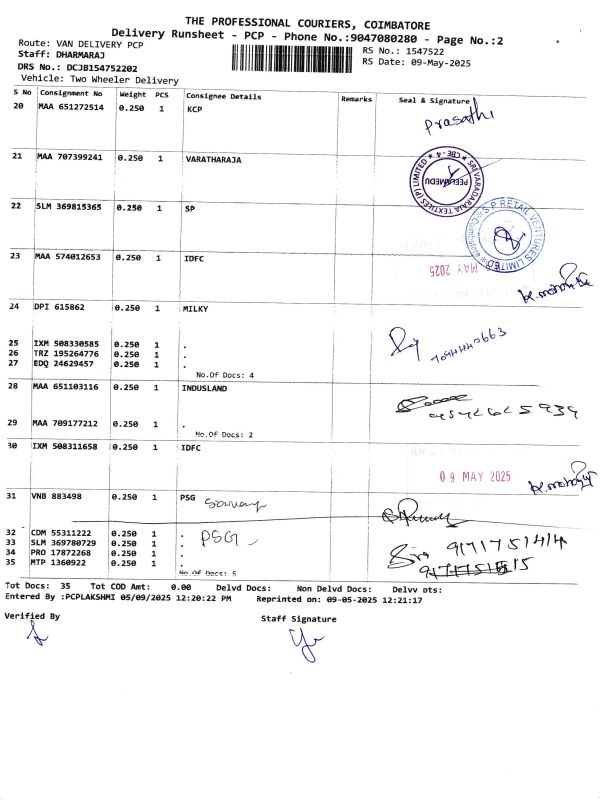 THE PROFESSIONAL COURIERS, COIMBATORE
Delivery Runsheet - PCP - Phone No.:9047080280 - Page No.:2
Route: VAN DELIVERY PCP
RS No.: 1547522
Staff: DHARMARAJ
RS Date: 09-May-2025
DRS No.: DCJB154752202
Vehicle: Two Wheeler Delivery
S No Consignment No Weight PCS Consignee Details Remarks Seal & Signature
20 MAA 651272514 0.250 1 KCP
Prasathi
21 MAA 707399241 0.250 1 VARATHARAJA
SRI VARADARAJA TEXTILES (P) LIMITED * CBE-4 *
PEELAMEDU
22 SLM 369815365 0.250 1 SP
S P RETAIL VENTURES LIMITED * Coimbatore *
23 MAA 574012653 0.250 1 IDFC
MAY 2025
24 DPI 615862 0.250 1 MILKY
25 IXM 508330585 0.250 1 .
26 TRZ 195264776 0.250 1 .
27 EDQ 24629457 0.250 1 .
No.Of Docs: 4
28 MAA 651103116 0.250 1 INDUSLAND
29 MAA 709177212 0.250 1 .
No.Of Docs: 2
30 IXM 508311658 0.250 1 IDFC
09 MAY 2025
31 VNB 883498 0.250 1 PSG
32 CDM 55311222 0.250 1 .
PSG
33 SLM 369780729 0.250 1 .
34 PRO 17872268 0.250 1 .
35 MTP 1360922 0.250 1 .
No.Of Docs: 5
Tot Docs: 35 Tot COD Amt: 0.00 Delvd Docs: Non Delvd Docs: Delvv pts:
Entered By :PCPLAKSHMI 05/09/2025 12:20:22 PM Reprinted on: 09-05-2025 12:21:17
Verified By
Staff Signature